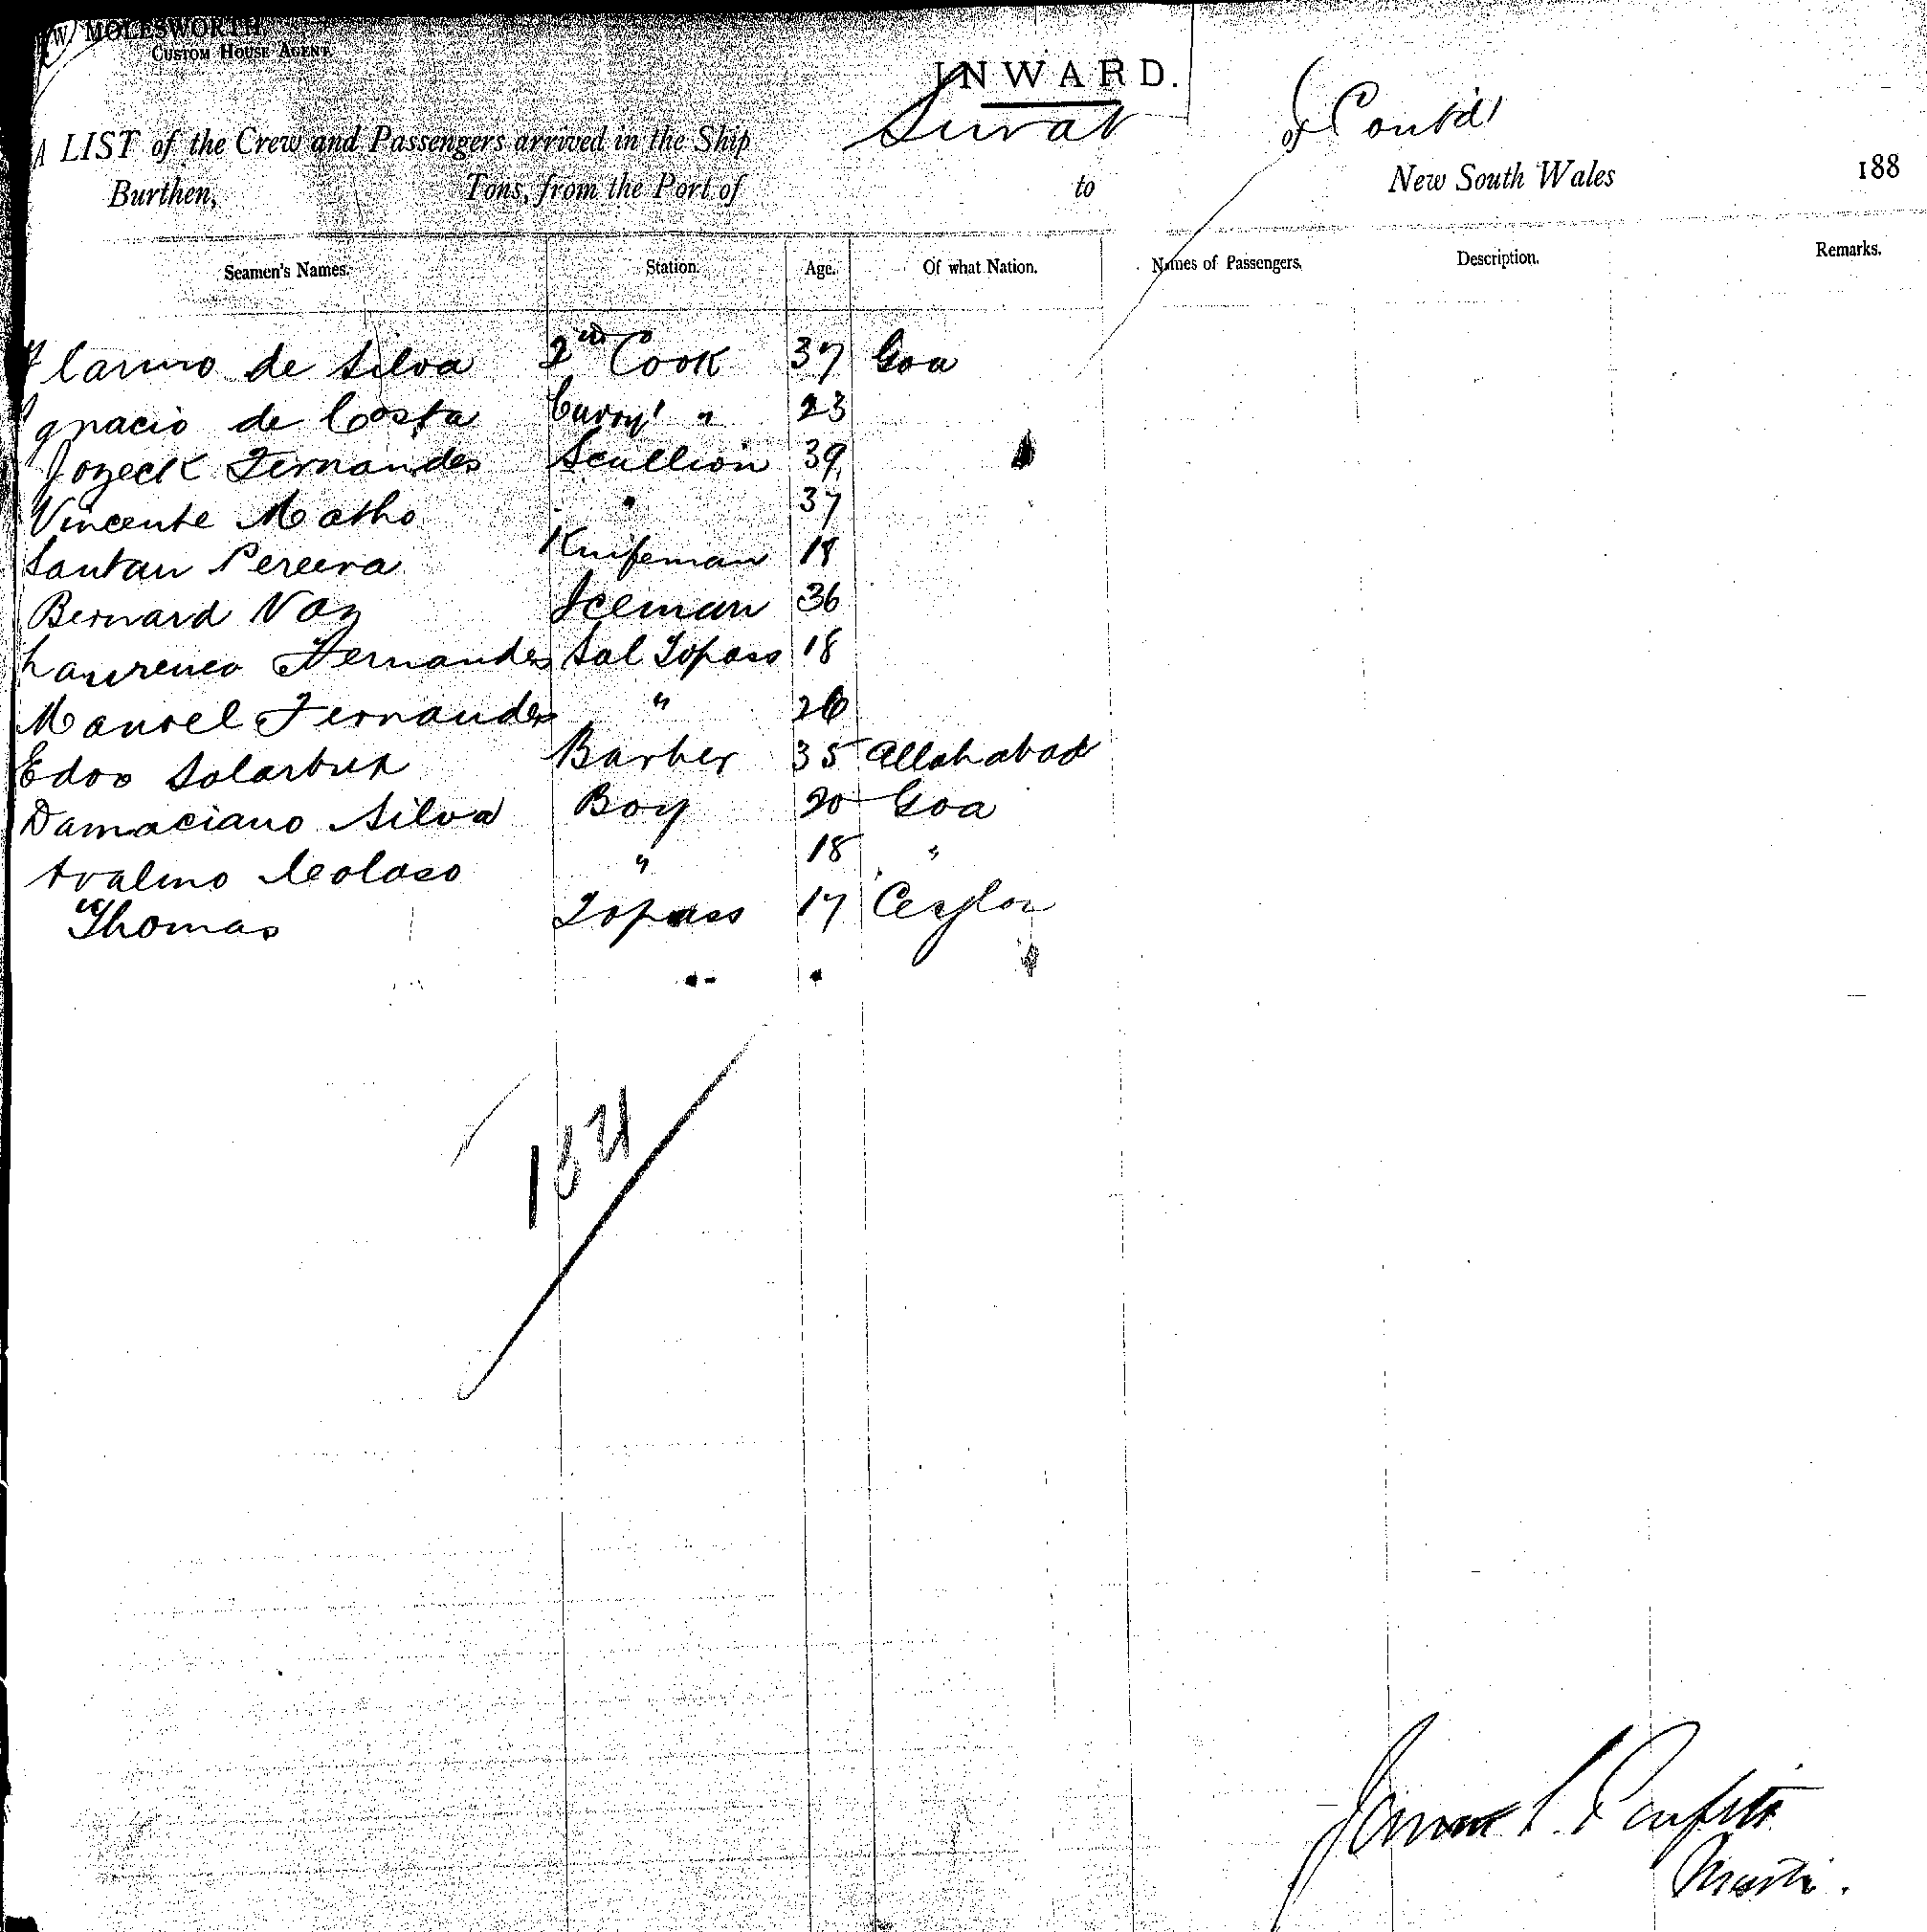 W. MOLESWORTH,
CUSTOM HOUSE AGENT.
INWARD.
A LIST of the Crew and Passengers arrived in the Ship Surat of Contd
Burthen, Tons, from the Port of to New South Wales 188
Seamen's Names. Station. Age. Of what Nation. Names of Passengers. Description. Remarks.
de Silva 2nd Cook 37 Goa
Ignacio de Costa Curry " 23
Jozeck Fernandes Scullion 39
Vincente Matho " 37
Santan Pereera Knifeman 18
Bernard Vaz Iceman 36
Laurenco Fernandes Sal Topass 18
Manoel Fernandes " 26
Edoo Barber 35 Allahabad
Damaciano Silva Boy 20 Goa
Avalino Colaso " 18 "
Thomas Topass 17 Ceylon